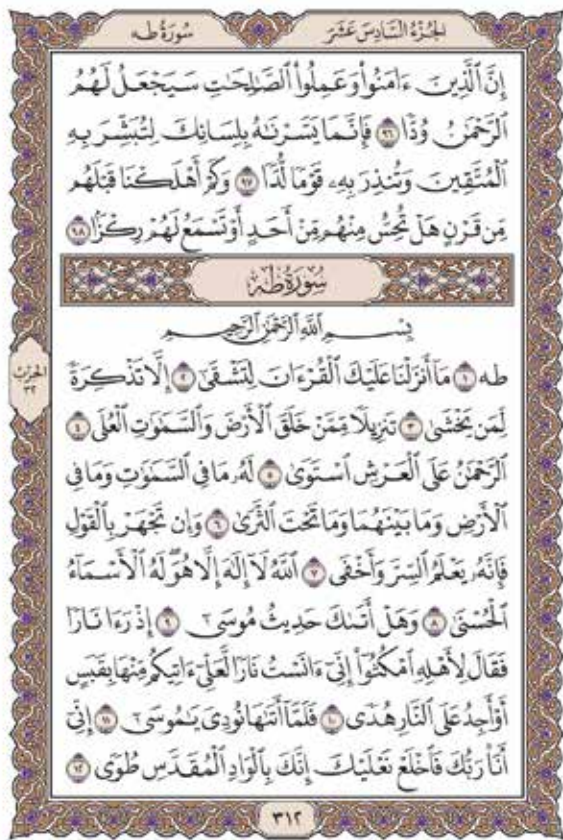 الجُزْءُ السَّادِسَ عَشَرَ
سُورَةُ طه
إِنَّ ٱلَّذِينَ ءَامَنُوا۟ وَعَمِلُوا۟ ٱلصَّٰلِحَٰتِ سَيَجْعَلُ لَهُمُ
ٱلرَّحْمَٰنُ وُدًّا ٩٦ فَإِنَّمَا يَسَّرْنَٰهُ بِلِسَانِكَ لِتُبَشِّرَ بِهِ
ٱلْمُتَّقِينَ وَتُنذِرَ بِهِۦ قَوْمًا لُّدًّا ٩٧ وَكَمْ أَهْلَكْنَا قَبْلَهُم
مِّن قَرْنٍ هَلْ تُحِسُّ مِنْهُم مِّنْ أَحَدٍ أَوْ تَسْمَعُ لَهُمْ رِكْزًۢا ٩٨
سُورَةُ طه
بِسْمِ ٱللَّهِ ٱلرَّحْمَٰنِ ٱلرَّحِيمِ
طه ١ مَآ أَنزَلْنَا عَلَيْكَ ٱلْقُرْءَانَ لِتَشْقَىٰٓ ٢ إِلَّا تَذْكِرَةً
لِّمَن يَخْشَىٰ ٣ تَنزِيلًا مِّمَّنْ خَلَقَ ٱلْأَرْضَ وَٱلسَّمَٰوَٰتِ ٱلْعُلَى ٤
ٱلرَّحْمَٰنُ عَلَى ٱلْعَرْشِ ٱسْتَوَىٰ ٥ لَهُۥ مَا فِى ٱلسَّمَٰوَٰتِ وَمَا فِى
ٱلْأَرْضِ وَمَا بَيْنَهُمَا وَمَا تَحْتَ ٱلثَّرَىٰ ٦ وَإِن تَجْهَرْ بِٱلْقَوْلِ
فَإِنَّهُۥ يَعْلَمُ ٱلسِّرَّ وَأَخْفَى ٧ ٱللَّهُ لَآ إِلَٰهَ إِلَّا هُوَ ۖ لَهُ ٱلْأَسْمَآءُ
ٱلْحُسْنَىٰ ٨ وَهَلْ أَتَىٰكَ حَدِيثُ مُوسَىٰٓ ٩ إِذْ رَءَا نَارًا
فَقَالَ لِأَهْلِهِ ٱمْكُثُوٓا۟ إِنِّىٓ ءَانَسْتُ نَارًا لَّعَلِّىٓ ءَاتِيكُم مِّنْهَا بِقَبَسٍ
أَوْ أَجِدُ عَلَى ٱلنَّارِ هُدًى ١٠ فَلَمَّآ أَتَىٰهَا نُودِىَ يَٰمُوسَىٰٓ ١١ إِنِّىٓ
أَنَا۠ رَبُّكَ فَٱخْلَعْ نَعْلَيْكَ ۖ إِنَّكَ بِٱلْوَادِ ٱلْمُقَدَّسِ طُوًى ١٢
الحِزْب
٣٢
٣١٢